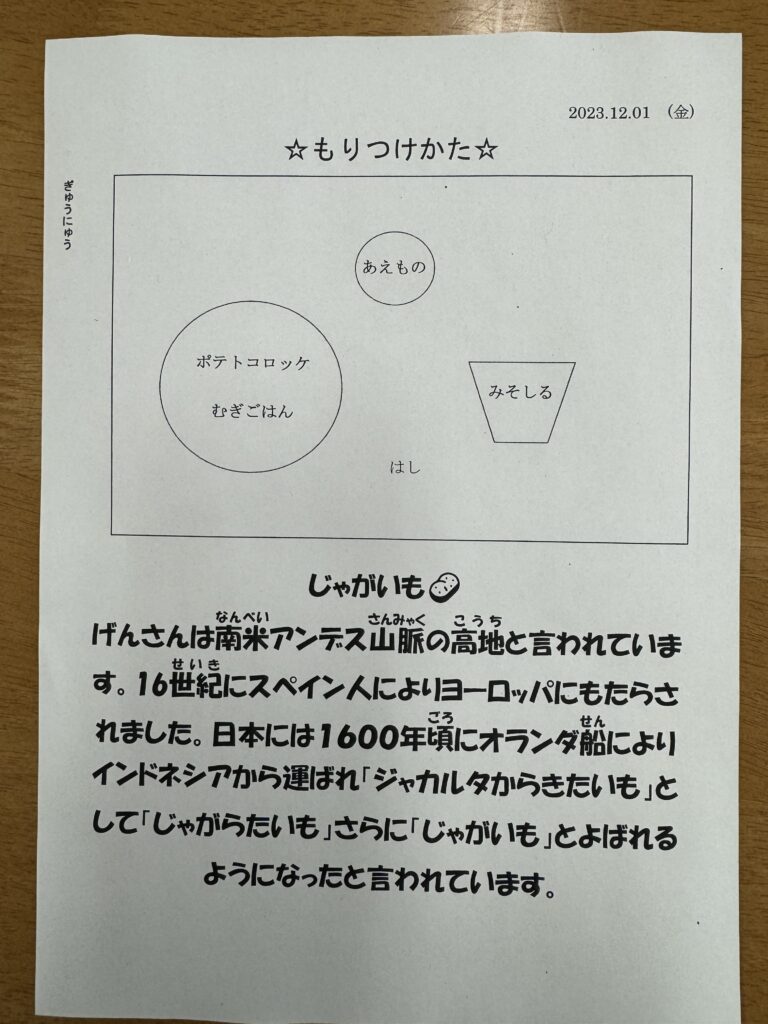 2023.12.01 (金)
☆もりつけかた☆
ぎゅうにゅう
あえもの
ポテトコロッケ
むぎごはん
みそしる
はし
じゃがいも
なんべい さんみゃく こうち
げんさんは南米アンデス山脈の高地と言われていま
せいき
す。16世紀にスペイン人によりヨーロッパにもたらさ
ごろ せん
れました。日本には1600年頃にオランダ船により
インドネシアから運ばれ「ジャカルタからきたいも」と
して「じゃがらたいも」さらに「じゃがいも」とよばれる
ようになったと言われています。